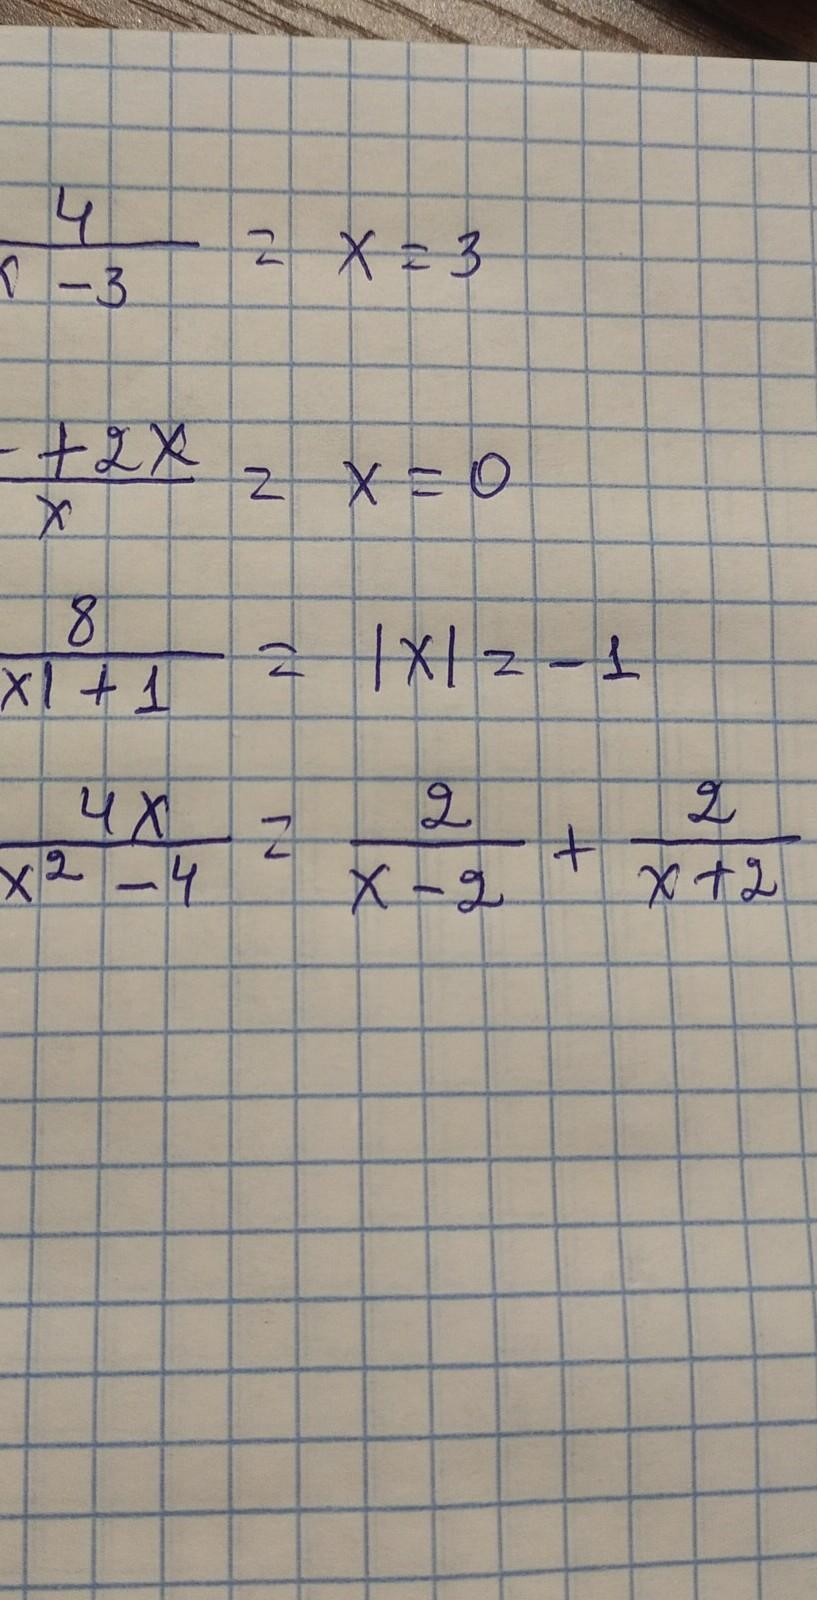 4 / -3 = x = 3
+2x / x = x = 0
8 / x| + 1 = |x| = -1
4x / x² - 4 = 2 / x - 2 + 2 / x + 2